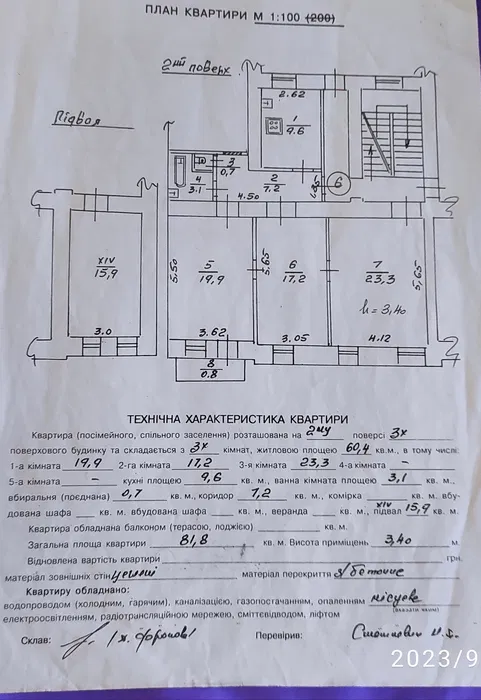 ПЛАН КВАРТИРИ М 1:100 (200)
2ий поверх
Підвал
2.62
1
9.6
3
0,7
4
3.1
2
7.2
6
4.50
XIV
15,9
5.50
5
19,9
5.65
6
17,2
7
23,3
5,65
h = 3,40
3.0
3.62
3.05
4.12
8
0.8
ТЕХНІЧНА ХАРАКТЕРИСТИКА КВАРТИРИ
Квартира (посімейного, спільного заселення) розташована на 2му поверсі 3х
поверхового будинку та складається з 3х кімнат, житловою площею 60,4 кв.м., в тому числі:
1-а кімната 19,9 2-га кімната 17,2 3-я кімната 23,3 4-а кімната –
5-а кімната – кухні площею 9,6 кв. м., ванна кімната площею 3,1 кв. м.,
вбиральня (поєднана) 0,7 кв. м., коридор 7,2 кв. м., комірка кв. м. вбу-
дована шафа кв. м. вбудована шафа кв. м., веранда кв. м., XIV підвал 15,9 кв. м.
Квартира обладнана балконом (терасою, лоджією) кв. м.
Загальна площа квартири 81,8 кв. м. Висота приміщень 3,40 м.
Відновлена вартість квартири грн.
матеріал зовнішніх стін матеріал перекриття
Квартиру обладнано:
водопроводом (холодним, гарячим), каналізацією, газопостачанням, опаленням місцеве
(вказати яким)
електроосвітленням, радіотрансляційною мережею, сміттєвідводом, ліфтом
Склав: Перевірив:
2023/9